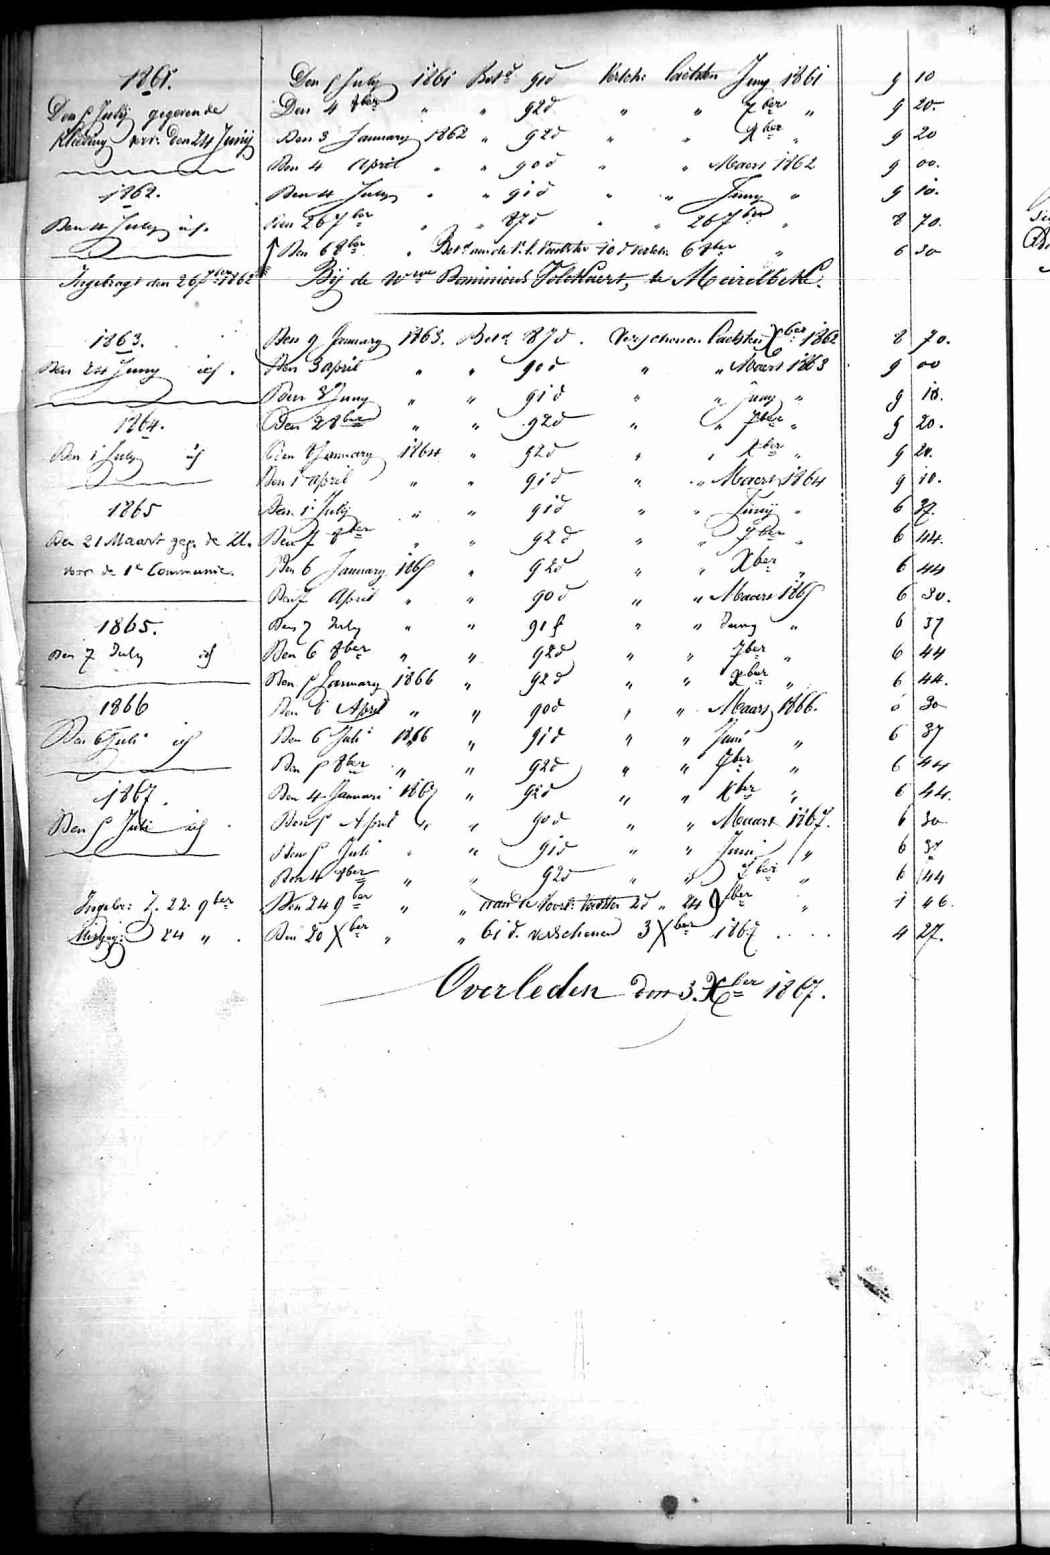 1861. Den 5 July 1861 Bet.d 91d Verschn laetsten Juny 1861 9 10
Den 5 July gegeven de Den 4 8ber " " 92d " " 7ber " 9 20.
Kleeding voor den 24 Junij Den 3 January 1862 " 92d " " Xber " 9 20
Den 4 April " " 90d " " Maert 1862 9 00.
1862. Den 4 July " " 91d " " Juny " 9 10.
Den 4 July id. Den 26 7ber " " 87d " " 26 7ber 8 70.
Den 6 8ber " 10d 6 8ber " 6 30
Ingebragt den 26 7ber 1862 Bij de Wwe Dominicus Volckaert, te Meirelbeke.
1863. Den 9 January 1863. Betd 87d. Verschenen laetsten Xber 1862 8 70.
Den 24 Juny id. Den 3 april " " 90d " " Maert 1863 9 00
Den 3 Juny " " 91d " " Juny " 9 10.
1864. Den 2 8ber " " 92d " " 7ber " 9 20.
Den 1 July id Den 8 January 1864 " 92d " " Xber " 9 20.
Den 1 april " " 91d " " Maert 1864 9 10.
1865 Den 1 July " " 91d " " Junij " 6 37.
Den 21 Maart geg. de kl. Den 7 8ber " " 92d " " 7ber " 6 44.
voor de 1e Communie. Den 6 January 1865 " 92d " " Xber " 6 44
Den 7 April " " 90d " " Maart 1865 6 30.
1865. Den 7 July " " 91d " " Juny " 6 37
Den 7 July id Den 6 8ber " " 92d " " 7ber " 6 44
Den 5 January 1866 " 92d " " Xber " 6 44.
1866 Den 6 April " " 90d " " Maart 1866. 6 30
Den 6 Juli id Den 6 Juli 1866 " 91d " " Juni " 6 37
Den 5 8ber " " 92d " " 7ber " 6 44
1867. Den 4 Januari 1867 " 92d " " Xber " 6 44.
Den 5 Juli id. Den 5 April " " 90d " " Maart 1867. 6 30
Den 5 Juli " " 91d " " Juni " 6 37
Den 4 8ber " " 92d " " 7ber " 6 44
Ingebr: d. 22. 9ber Den 24 9ber " " 24 9ber " 1 46.
24 " . Den 20 Xber " " 61 d. verschenen 3 Xber 1867 .... 4 27.
Overleden den 3. Xber 1867.